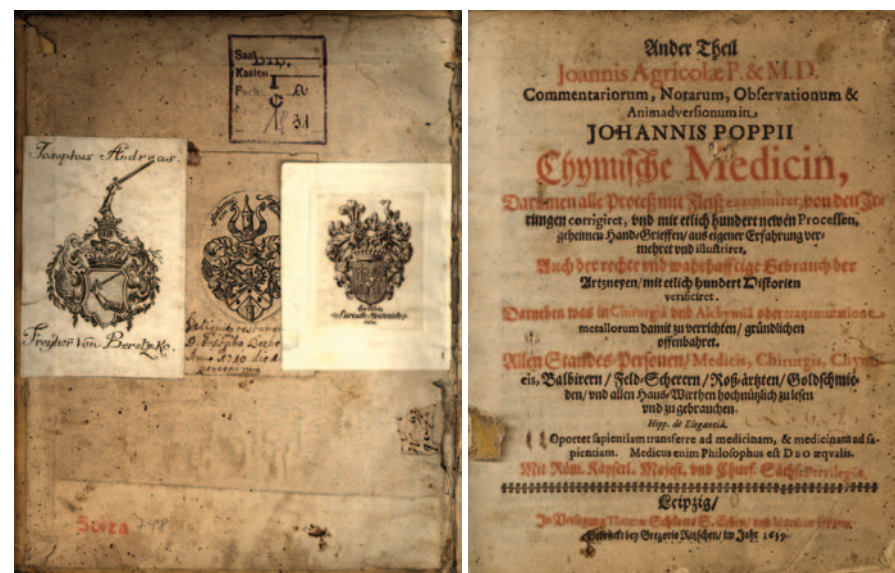 Saal
Kasten I
Fach
31
Josephus Andreas.
Freyherr von
Ex Libris
Anno 1710 die
748
Ander Theil
Joannis Agricolæ P. & M.D.
Commentariorum, Notarum, Observationum &
Animadversionum in
JOHANNIS POPPII
Chymische Medicin,
Darinnen alle Proceß mit Fleiß examiniret, von den Jr-
rungen corrigiret, vnd mit etlich hundert newen Processen,
geheimen Hand-Grieffen/ aus eigener Erfahrung ver-
mehret vnd illustriret,
Auch der rechte vnd wahrhafftige Gebrauch der
Artzneyen/ mit etlich hundert Historien
verificiret.
Darneben was in Chirurgiâ vnd Alchymiâ oder transmutatione
metallorum damit zu verrichten/ gründlichen
offenbahret.
Allen Standes-Personen/ Medicis, Chirurgis, Chym-
cis, Balbirern/ Feld-Scherern/ Roß-ärtzten/ Goldschmie-
den/ vnd allen Haus-Wirthen hochnützlich zu lesen
vnd zu gebrauchen.
Hipp. de Elegantiâ.
Oportet sapientiam transferre ad medicinam, & medicinam ad sa-
pientiam. Medicus enim Philosophus est DEO æqualis.
Mit Röm. Käyserl. Majest. vnd Churf. Sächs. Privilegio.
Leipzig/
In Verlegung Thomæ Schürers S. Erben/ vnd Matthiæ Götzens.
Gedruckt bey Gregorio Ritzschen/ im Jahr 1639.